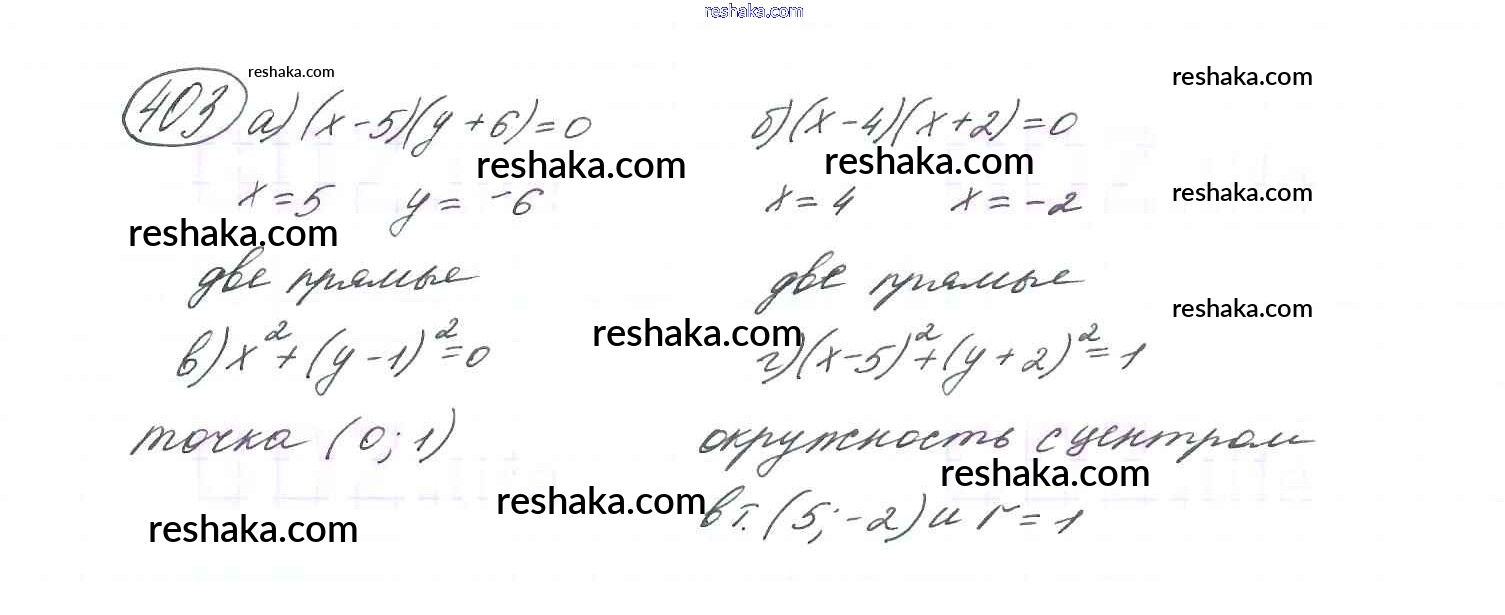 reshaka.com
403 reshaka.com а) (x-5)(y+6)=0 б) (x-4)(x+2)=0 reshaka.com
reshaka.com reshaka.com
x=5 y=-6 x=4 x=-2 reshaka.com
reshaka.com
две прямые две прямые
reshaka.com
в) x²+(y-1)²=0 reshaka.com г) (x-5)²+(y+2)²=1
точка (0;1) окружность с центром
reshaka.com
reshaka.com в т. (5;-2) и r=1
reshaka.com